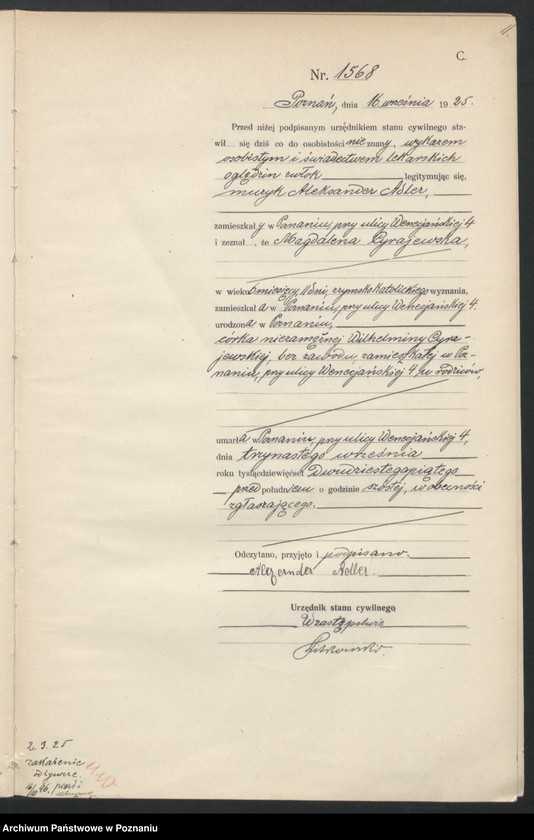 C.
Nr. 1568
Poznań, dnia 16 września 1925.
Przed niżej podpisanym urzędnikiem stanu cywilnego sta-
wił się dziś co do osobistości nieznany, wykazem
osobistym i świadectwem lekarskich
oględzin zwłok legitymując się,
muzyk Aleksander Adler,
zamieszkały w Poznaniu, przy ulicy Wenecjańskiej 4
i zeznał, że Magdalena Cyrajewska,
w wieku 6 miesięcy, 11 dni, rzymskokatolickiego wyznania,
zamieszkała w Poznaniu, przy ulicy Wenecjańskiej 4.
urodzona w Poznaniu,
córka niezamężnej Wilhelminy Cyra-
jewskiej, bez zawodu, zamieszkałej w Poz-
naniu, przy ulicy Wenecjańskiej 4, u rodziców,
umarła w Poznaniu, przy ulicy Wenecjańskiej 4,
dnia trzynastego września
roku tysiącdziewięćset dwudziestegopiątego
przed południem o godzinie szóstej, w obecności
zgłaszającego.
Odczytano, przyjęto i podpisano.
Alexander Adler.
Urzędnik stanu cywilnego
W zastępstwie
2.3.25
zakażenie
Archiwum Państwowe w Poznaniu